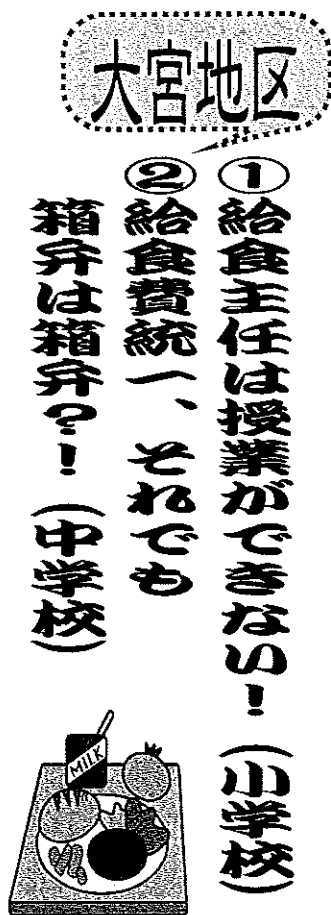 大宮地区
①給食主任は授業ができない！（小学校）
②給食費統一、それでも
箱弁は箱弁？！（中学校）
MILK